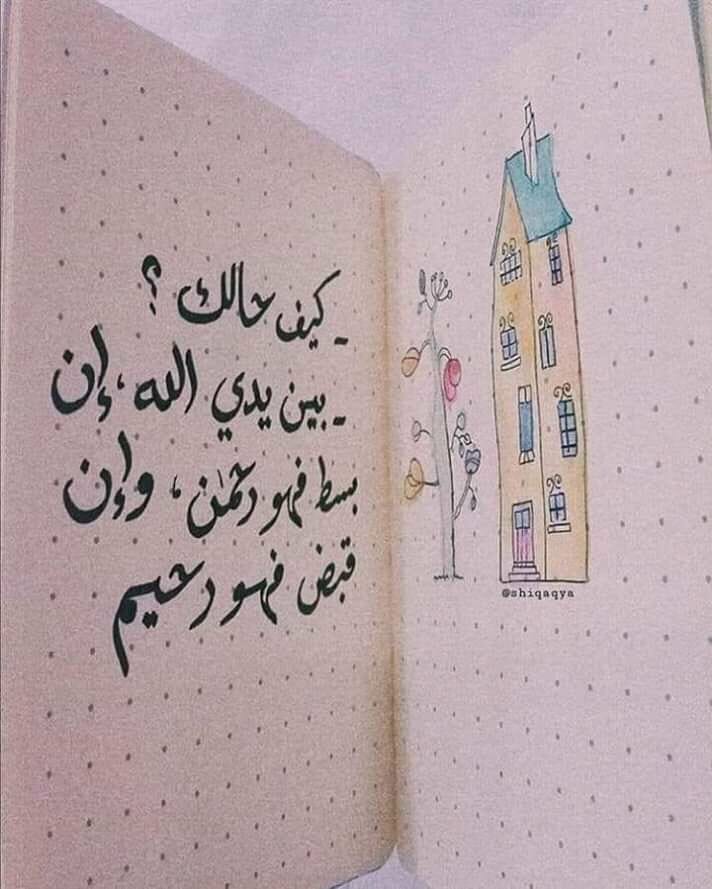 - كيف حالك ؟
- بين يدي الله ، إن
بسط فهو رحمٰن ، وإن
قبض فهو رحيم
@shiqaqya